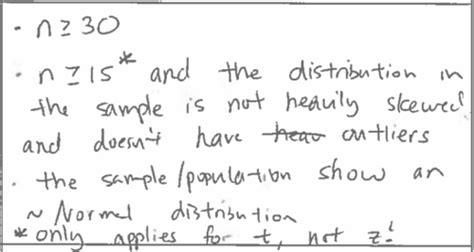 · n ≥ 30
· n ≥ 15* and the distribution in
the sample is not heavily skewed
and doesn't have heav outliers
· the sample/population show an
~ Normal distribution
* only applies for t, not z!